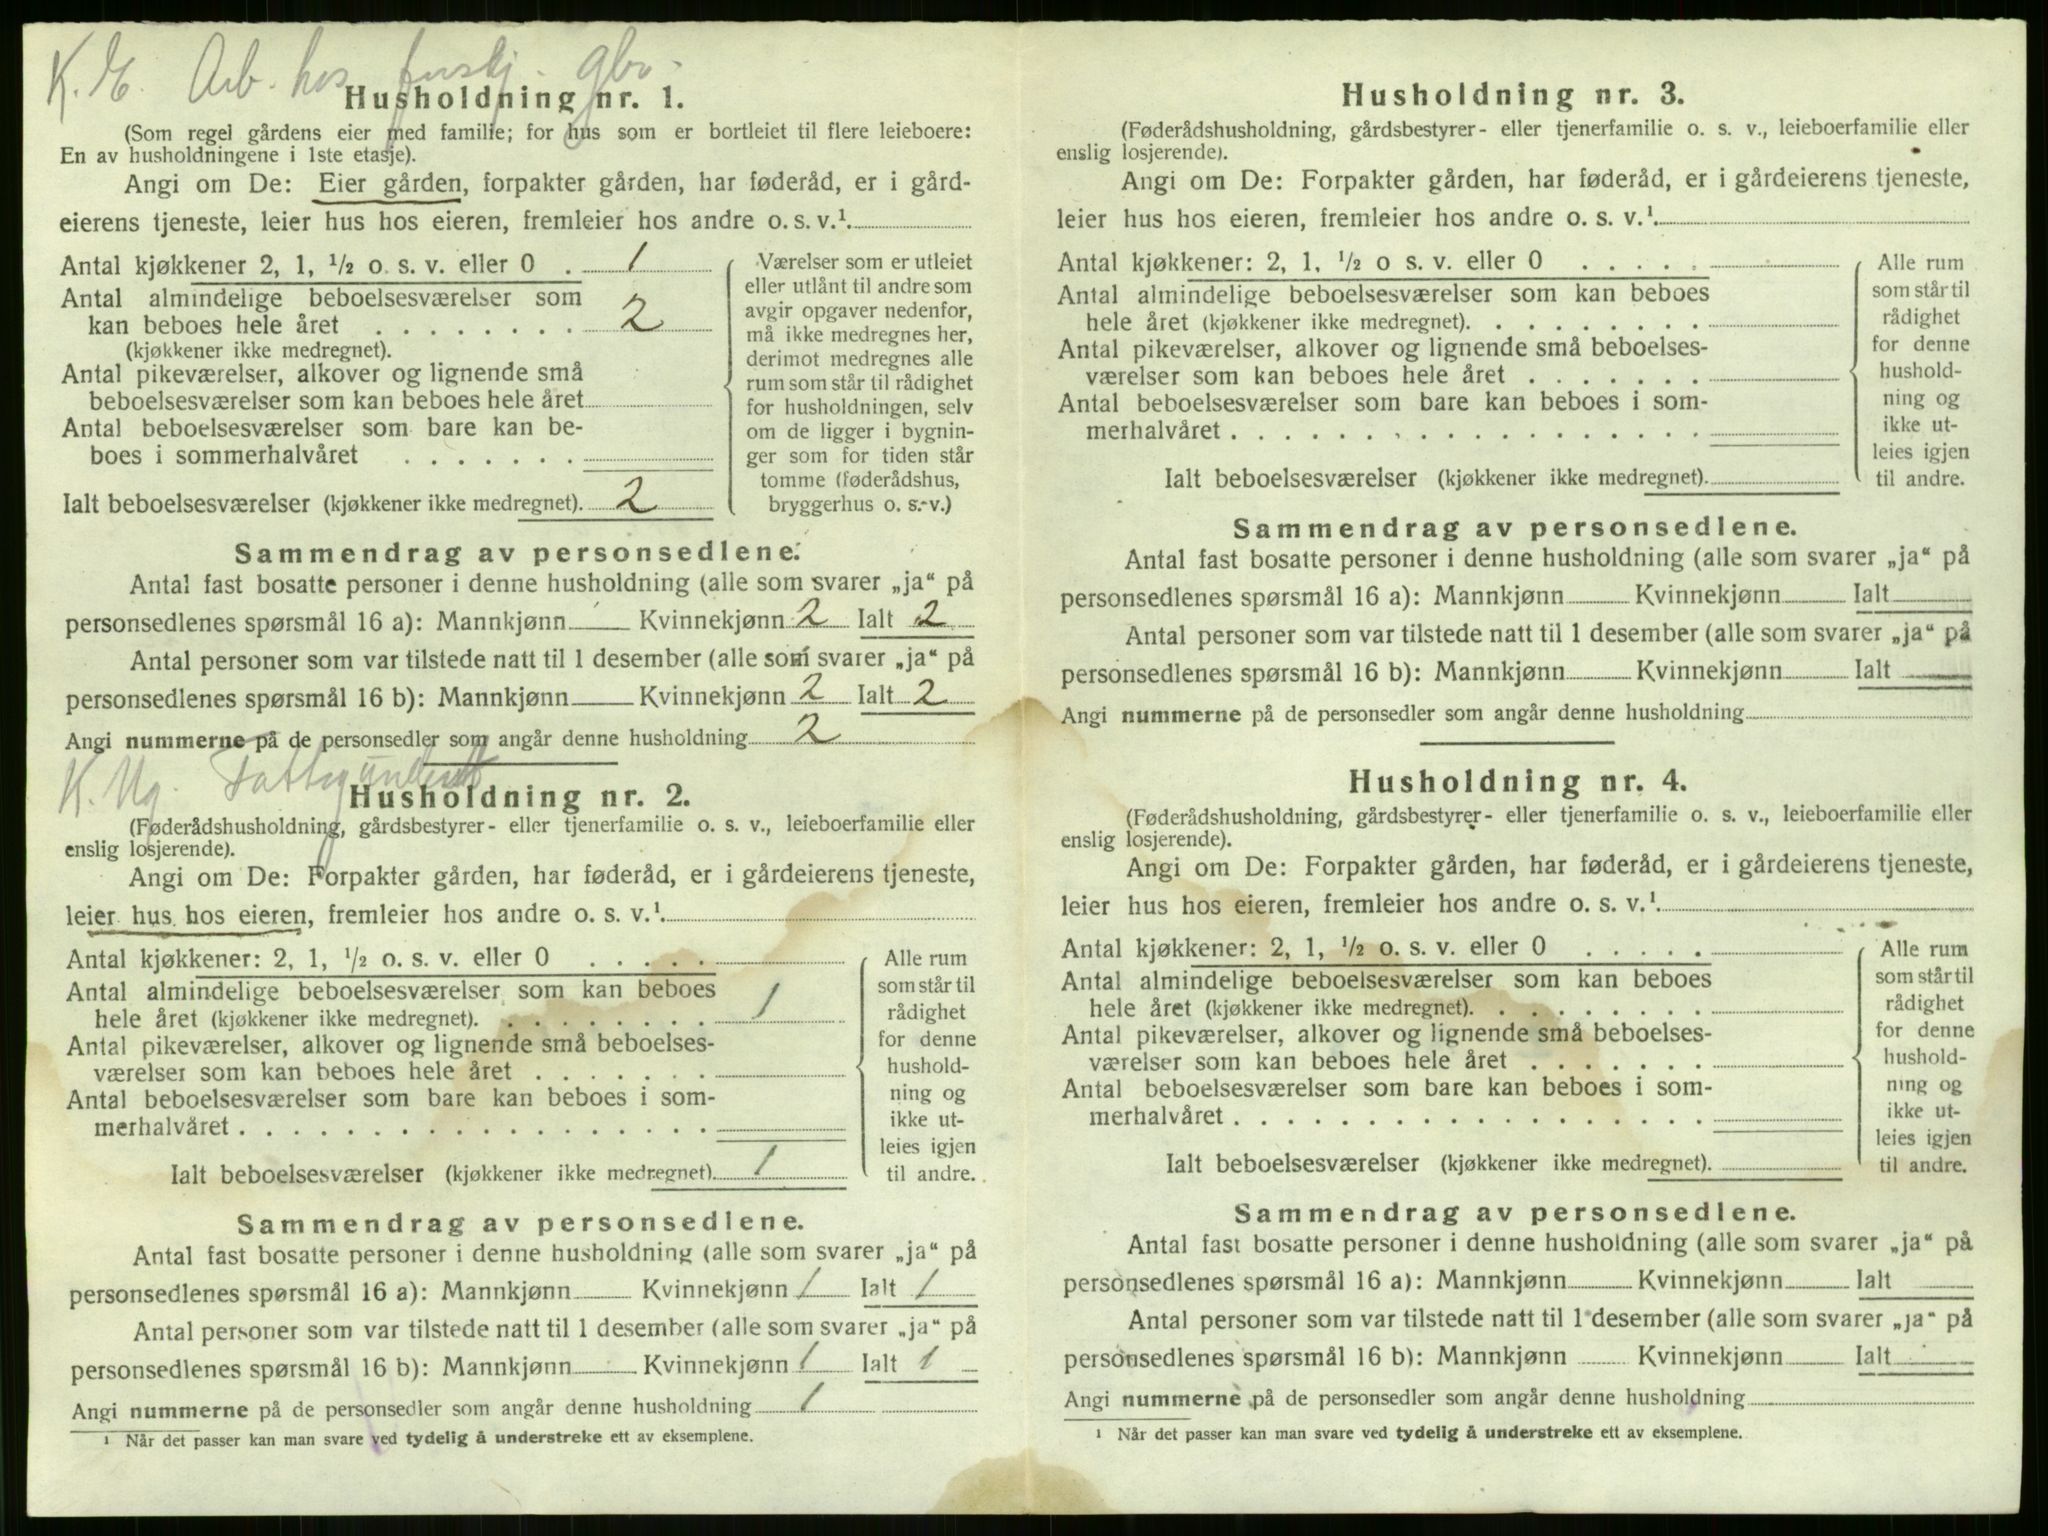 K. E. Arb. hos forskj. gbr.
Husholdning nr. 1.
(Som regel gårdens eier med familie; for hus som er bortleiet til flere leieboere:
En av husholdningene i 1ste etasje).
Angi om De: Eier gården, forpakter gården, har føderåd, er i gård-
eierens tjeneste, leier hus hos eieren, fremleier hos andre o. s. v.¹
Antal kjøkkener 2, 1, ½ o. s. v. eller 0 . 1
Antal almindelige beboelsesværelser som
kan beboes hele året . . . . . . . . 2
(kjøkkener ikke medregnet).
Antal pikeværelser, alkover og lignende små
beboelsesværelser som kan beboes hele året
Antal beboelsesværelser som bare kan be-
boes i sommerhalvåret . . . . . . .
Ialt beboelsesværelser (kjøkkener ikke medregnet). 2
Værelser som er utleiet
eller utlånt til andre som
avgir opgaver nedenfor,
må ikke medregnes her,
derimot medregnes alle
rum som står til rådighet
for husholdningen, selv
om de ligger i bygnin-
ger som for tiden står
tomme (føderådshus,
bryggerhus o. s. v.)
Sammendrag av personsedlene.
Antal fast bosatte personer i denne husholdning (alle som svarer „ja“ på
personsedlenes spørsmål 16 a): Mannkjønn Kvinnekjønn 2 Ialt 2
Antal personer som var tilstede natt til 1 desember (alle som svarer „ja“ på
personsedlenes spørsmål 16 b): Mannkjønn Kvinnekjønn 2 Ialt 2
Angi nummerne på de personsedler som angår denne husholdning 2
K. Ug. Fattigunderst
Husholdning nr. 2.
(Føderådshusholdning, gårdsbestyrer- eller tjenerfamilie o. s. v., leieboerfamilie eller
enslig losjerende).
Angi om De: Forpakter gården, har føderåd, er i gårdeierens tjeneste,
leier hus hos eieren, fremleier hos andre o. s. v.¹
Antal kjøkkener: 2, 1, ½ o. s. v. eller 0 . . . . .
Antal almindelige beboelsesværelser som kan beboes
hele året (kjøkkener ikke medregnet). . . . . . . . . 1
Antal pikeværelser, alkover og lignende små beboelses-
værelser som kan beboes hele året . . . . . . .
Antal beboelsesværelser som bare kan beboes i som-
merhalvåret . . . . . . . . . . . . . . . . . .
Ialt beboelsesværelser (kjøkkener ikke medregnet). 1
Alle rum
som står til
rådighet
for denne
hushold-
ning og
ikke ut-
leies igjen
til andre.
Sammendrag av personsedlene.
Antal fast bosatte personer i denne husholdning (alle som svarer „ja“ på
personsedlenes spørsmål 16 a): Mannkjønn Kvinnekjønn 1 Ialt 1
Antal personer som var tilstede natt til 1 desember (alle som svarer „ja“ på
personsedlenes spørsmål 16 b): Mannkjønn Kvinnekjønn 1 Ialt 1
Angi nummerne på de personsedler som angår denne husholdning 1
¹ Når det passer kan man svare ved tydelig å understreke ett av eksemplene.
Husholdning nr. 3.
(Føderådshusholdning, gårdsbestyrer- eller tjenerfamilie o. s. v., leieboerfamilie eller
enslig losjerende).
Angi om De: Forpakter gården, har føderåd, er i gårdeierens tjeneste,
leier hus hos eieren, fremleier hos andre o. s. v.¹
Antal kjøkkener: 2, 1, ½ o s. v. eller 0 . . . . .
Antal almindelige beboelsesværelser som kan beboes
hele året (kjøkkener ikke medregnet). . . . . . . . .
Antal pikeværelser, alkover og lignende små beboelses-
værelser som kan beboes hele året . . . . . . .
Antal beboelsesværelser som bare kan beboes i som-
merhalvåret . . . . . . . . . . . . . . . . . .
Ialt beboelsesværelser (kjøkkener ikke medregnet).
Alle rum
som står til
rådighet
for denne
hushold-
ning og
ikke ut-
leies igjen
til andre.
Sammendrag av personsedlene.
Antal fast bosatte personer i denne husholdning (alle som svarer „ja“ på
personsedlenes spørsmål 16 a): Mannkjønn Kvinnekjønn Ialt
Antal personer som var tilstede natt til 1 desember (alle som svarer „ja“ på
personsedlenes spørsmål 16 b): Mannkjønn Kvinnekjønn Ialt
Angi nummerne på de personsedler som angår denne husholdning
Husholdning nr. 4.
(Føderådshusholdning, gårdsbestyrer- eller tjenerfamilie o. s. v., leieboerfamilie eller
enslig losjerende).
Angi om De: Forpakter gården, har føderåd, er i gårdeierens tjeneste,
leier hus hos eieren, fremleier hos andre o. s. v.¹
Antal kjøkkener: 2, 1, ½ o. s. v. eller 0 . . . . .
Antal almindelige beboelsesværelser som kan beboes
hele året (kjøkkener ikke medregnet). . . . . . . . .
Antal pikeværelser, alkover og lignende små beboelses-
værelser som kan beboes hele året . . . . . . .
Antal beboelsesværelser som bare kan beboes i som-
merhalvåret . . . . . . . . . . . . . . . . . .
Ialt beboelsesværelser (kjøkkener ikke medregnet).
Alle rum
som står til
rådighet
for denne
hushold-
ning og
ikke ut-
leies igjen
til andre.
Sammendrag av personsedlene.
Antal fast bosatte personer i denne husholdning (alle som svarer „ja“ på
personsedlenes spørsmål 16 a): Mannkjønn Kvinnekjønn Ialt
Antal personer som var tilstede natt til 1 desember (alle som svarer „ja“ på
personsedlenes spørsmål 16 b): Mannkjønn Kvinnekjønn Ialt
Angi nummerne på de personsedler som angår denne husholdning
¹ Når det passer kan man svare ved tydelig å understreke ett av eksemplene.